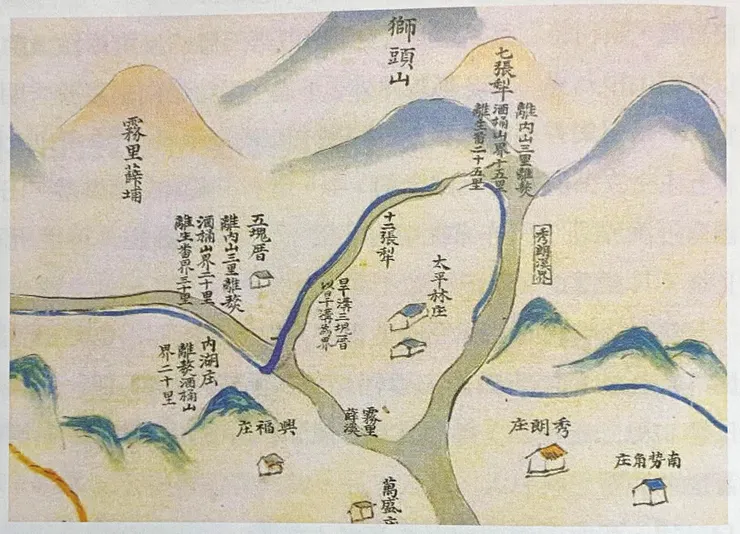 獅頭山
七張犁
離內山三里離熬
酒桶山界十五里
離生番二十五里
霧里薛埔
秀朗溪界
十二張犁
五塊厝
離內山三里離熬
酒桶山界二十里
離生番界三十里
太平林庄
旱溝三塊厝
以旱溝為界
內湖庄
離熬酒桶山
界二十里
霧里
薛溪
興福庄
秀朗庄
南势角庄
萬盛庄